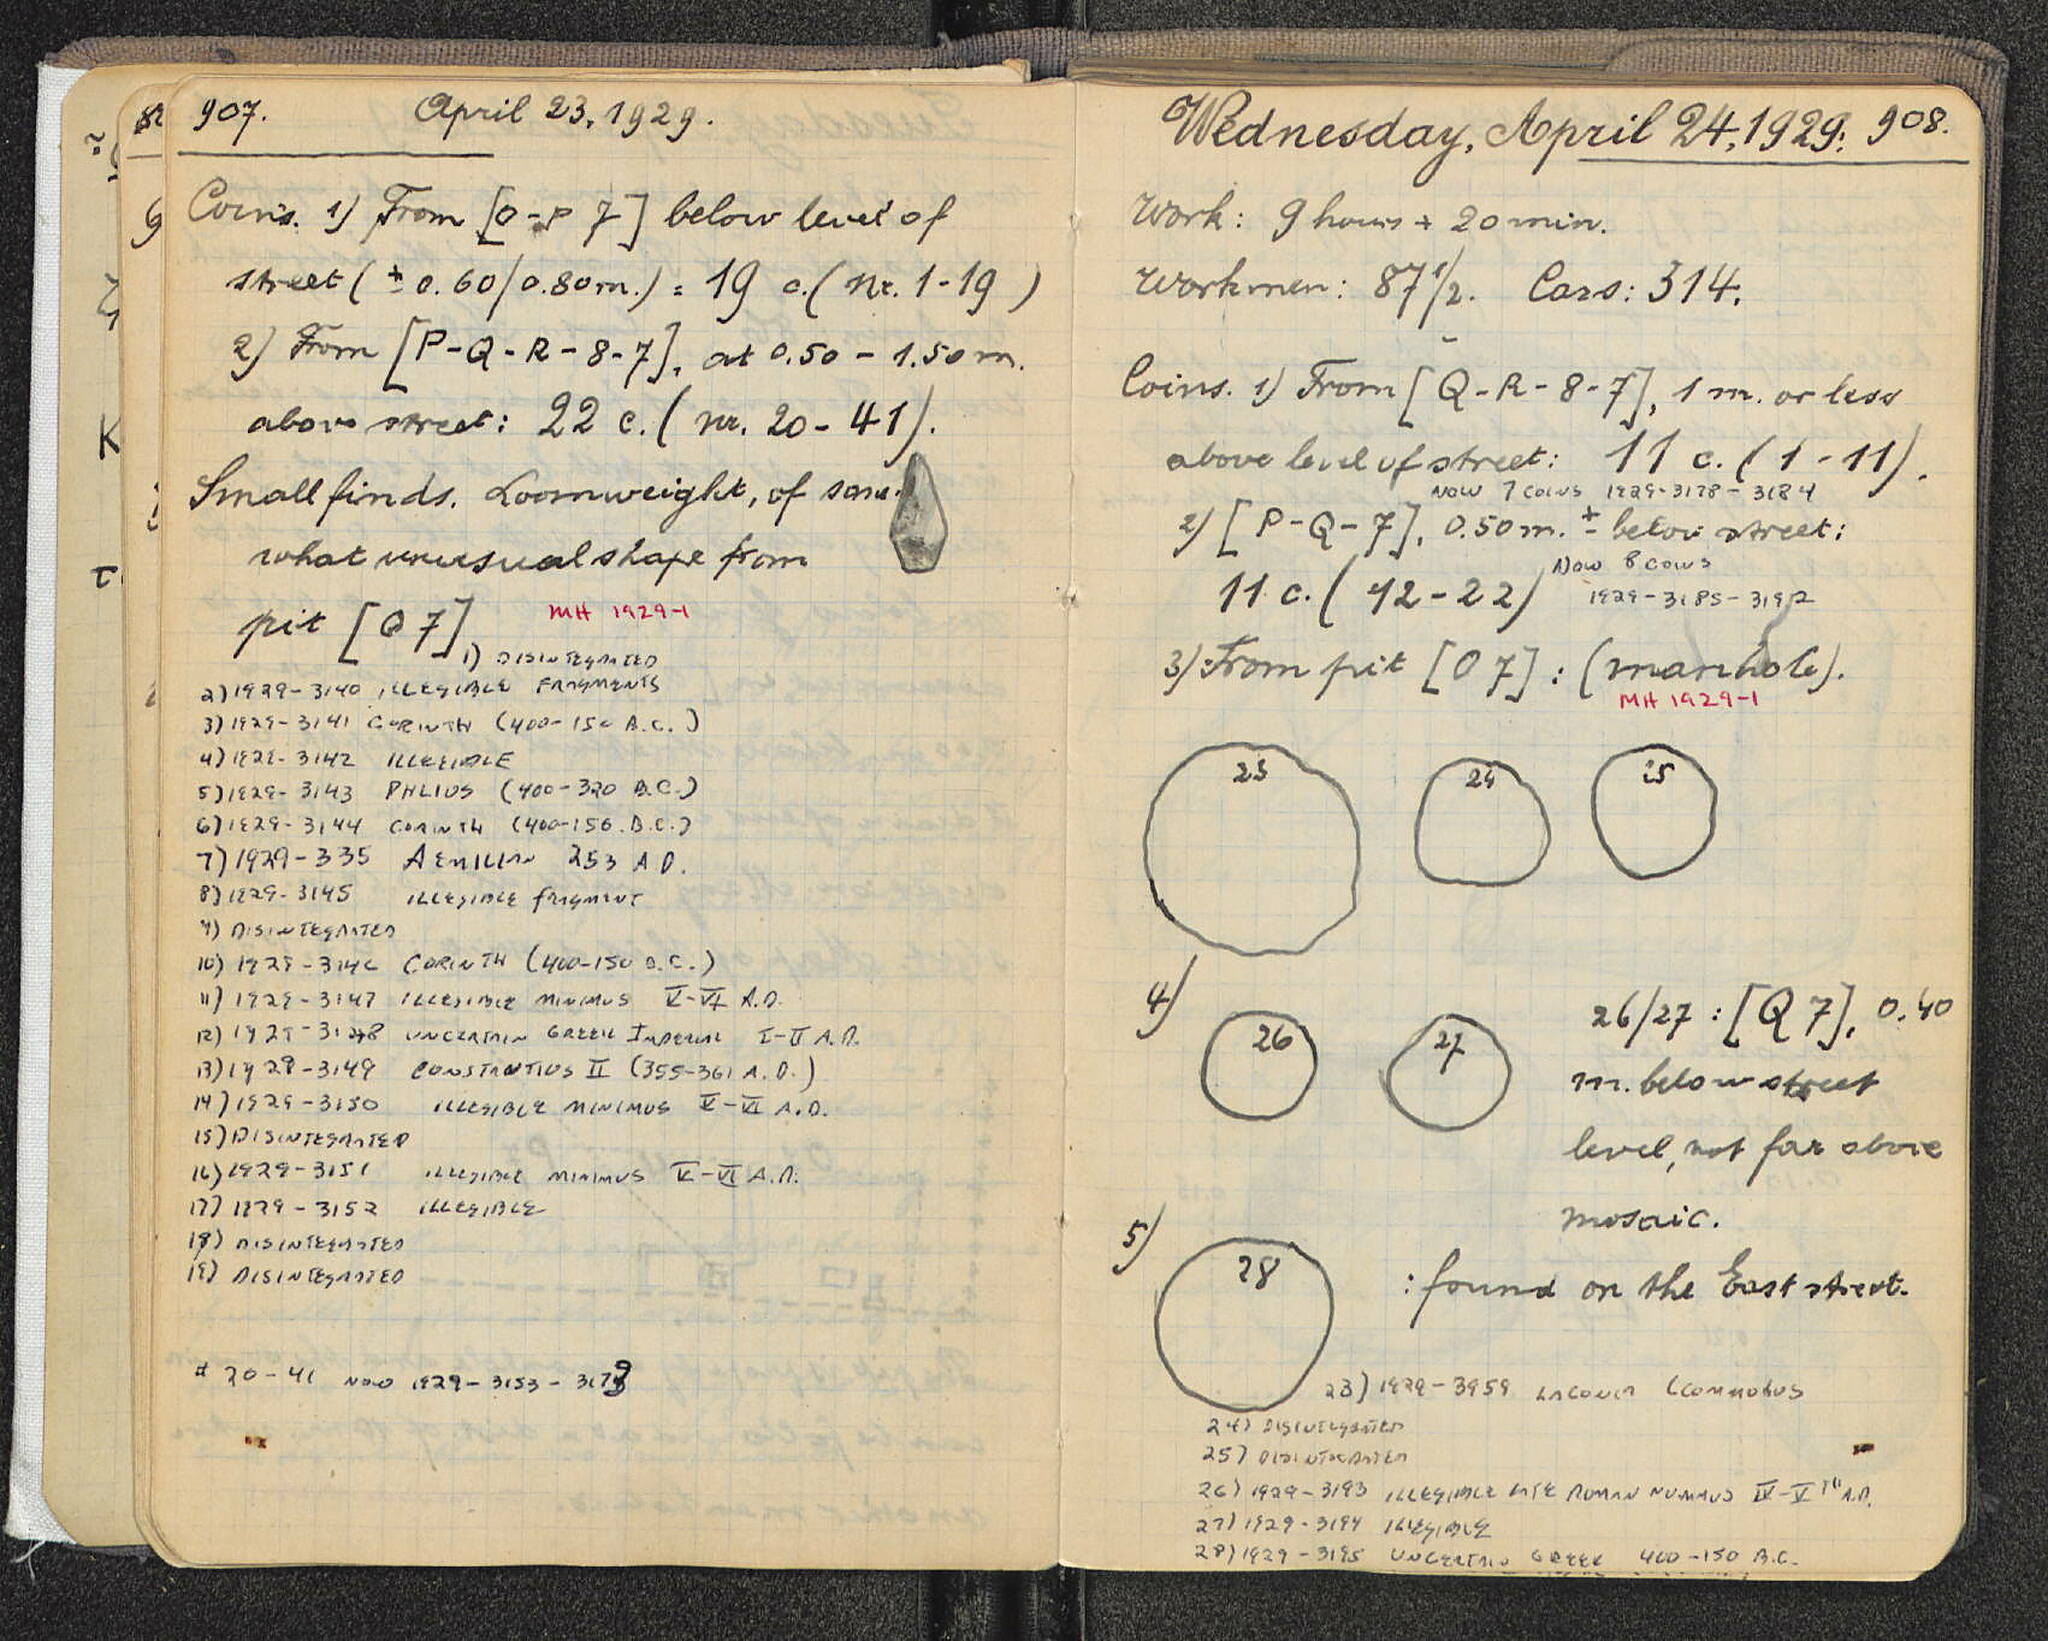 907. April 23, 1929.
Coins. 1) From [O-P 7] below level of
street (± 0.60/0.80 m.) = 19 c. (nr. 1-19)
2) From [P-Q-R-8-7], at 0.50 - 1.50 m.
above street: 22 c. (nr. 20-41).
Small finds. Loomweight, of some-
what unusual shape from
pit [O 7],
MH 1929-1
1) DISINTEGRATED
2) 1929-3140 ILLEGIBLE FRAGMENTS
3) 1929-3141 CORINTH (400-150 B.C.)
4) 1929-3142 ILLEGIBLE
5) 1929-3143 PHLIUS (400-320 B.C.)
6) 1929-3144 CORINTH (400-150 B.C.)
7) 1929-335 AEMILIAN 253 A.D.
8) 1929-3145 ILLEGIBLE FRAGMENT
9) DISINTEGRATED
10) 1929-3146 CORINTH (400-150 B.C.)
11) 1929-3147 ILLEGIBLE MINIMUS V-VI A.D.
12) 1929-3148 UNCERTAIN GREEK IMPERIAL I-II A.D.
13) 1929-3149 CONSTANTIUS II (355-361 A.D.)
14) 1929-3150 ILLEGIBLE MINIMUS V-VI A.D.
15) DISINTEGRATED
16) 1929-3151 ILLEGIBLE MINIMUS V-VI A.D.
17) 1929-3152 ILLEGIBLE
18) DISINTEGRATED
19) DISINTEGRATED
# 20-41 NOW 1929-3153-
Wednesday, April 24, 1929. 908.
Work: 9 hours + 20 min.
Workmen: 87 1/2. Cars: 314.
Coins. 1) From [Q-R-8-7], 1 m. or less
above level of street: 11 c. (1-11).
NOW 7 COINS 1929-3178-3184
2) [P-Q-7], 0.50 m. ± below street:
11 c. (12-22)
NOW 8 COINS
1929-3185-3192
3) From pit [O 7]: (manhole).
MH 1929-1
23 24 25
4) 26 27
26/27: [Q 7], 0.40
m. below street
level, not far above
mosaic.
5) 28 : found on the East street.
23) 1929-3959 LACONIA (COMMODUS
24) DISINTEGRATED
25) DISINTEGRATED
26) 1929-3193 ILLEGIBLE LATE ROMAN NUMMUS IV-V TH A.D.
27) 1929-3194 ILLEGIBLE
28) 1929-3195 UNCERTAIN GREEK 400-150 B.C.